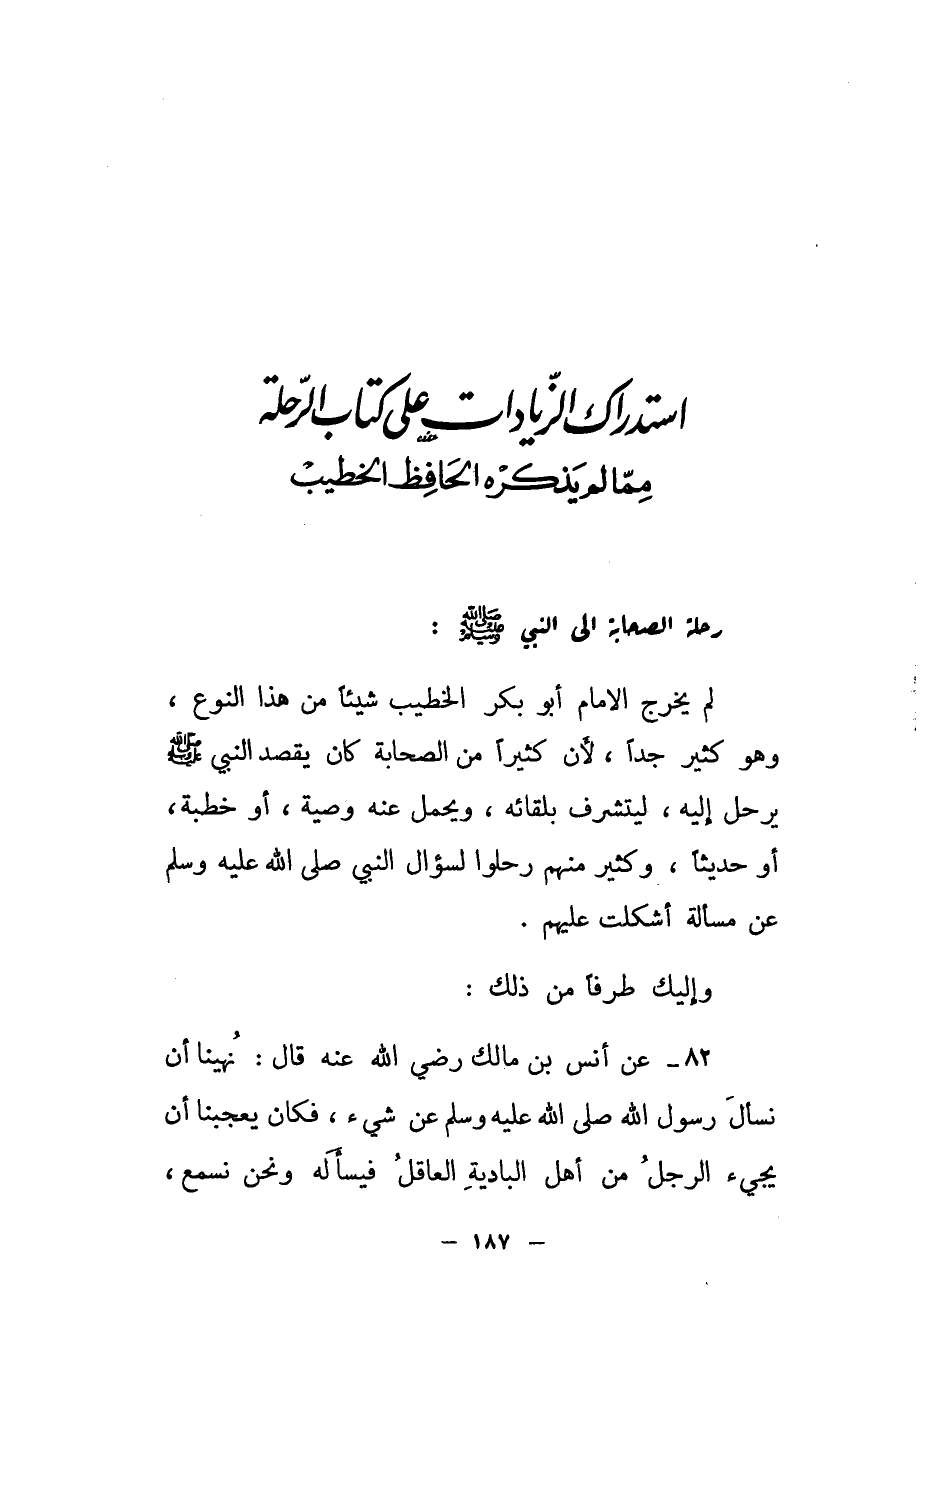 استدراك الزّيادات على كتاب الرّحلة
مِمّا لم يَذكرْه الحَافِظ الخطيبْ
رحلة الصحابة الى النبي ﷺ :
لم يخرج الامام أبو بكر الخطيب شيئاً من هذا النوع ،
وهو كثير جداً ، لأن كثيراً من الصحابة كان يقصد النبي ﷺ
يرحل إليه ، ليتشرف بلقائه ، ويحمل عنه وصية ، أو خطبة،
أو حديثاً ، وكثير منهم رحلوا لسؤال النبي صلى الله عليه وسلم
عن مسألة أشكلت عليهم .
وإليك طرفاً من ذلك :
٨٢ - عن أنس بن مالك رضي الله عنه قال : نُهينا أن
نسألَ رسول الله صلى الله عليه وسلم عن شيء ، فكان يعجبنا أن
يجيء الرجلُ من أهل الباديةِ العاقلُ فيسأَله ونحن نسمع ،
- ١٨٧ -